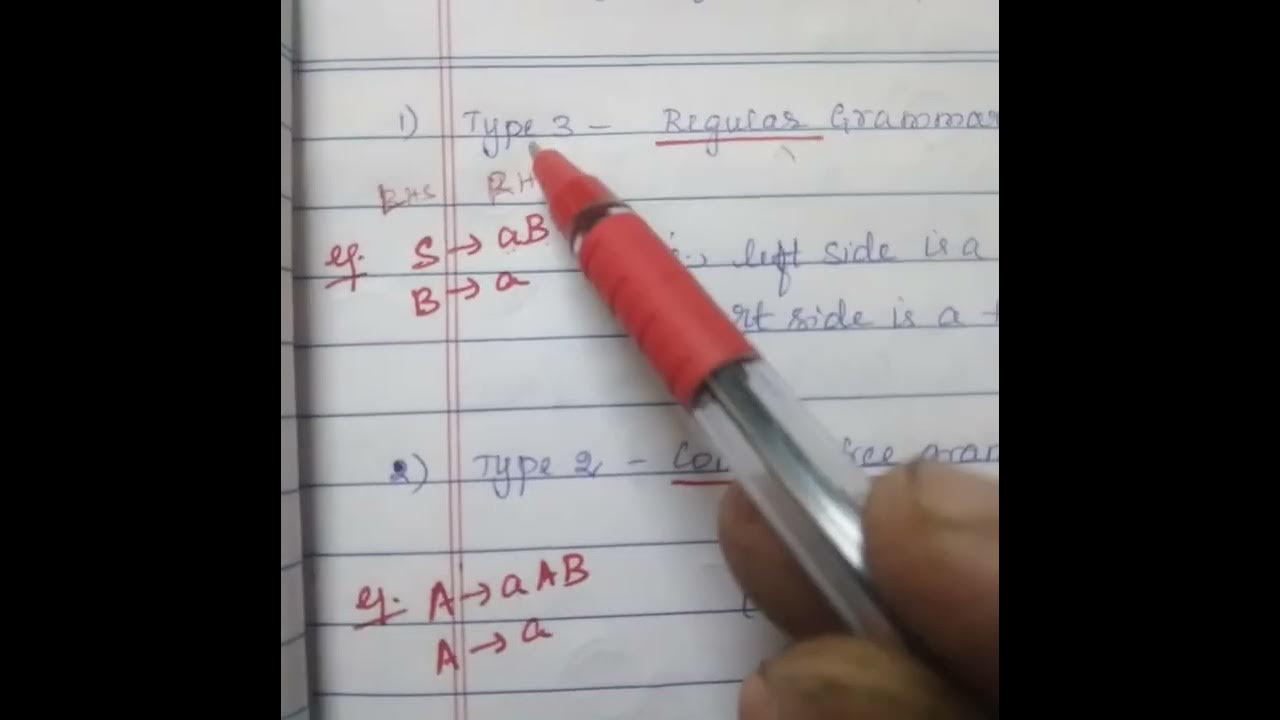 1) Type 3 - Regular Grammar
RHS RH
eg. S → aB left side is a
B → a side is a
2) Type 2 -
eg. A → aAB
A → a